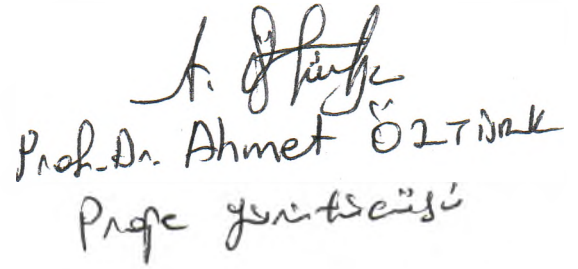 A. Öztürk
Prof. Dr. Ahmet ÖZTÜRK
Proje yürütücüsü